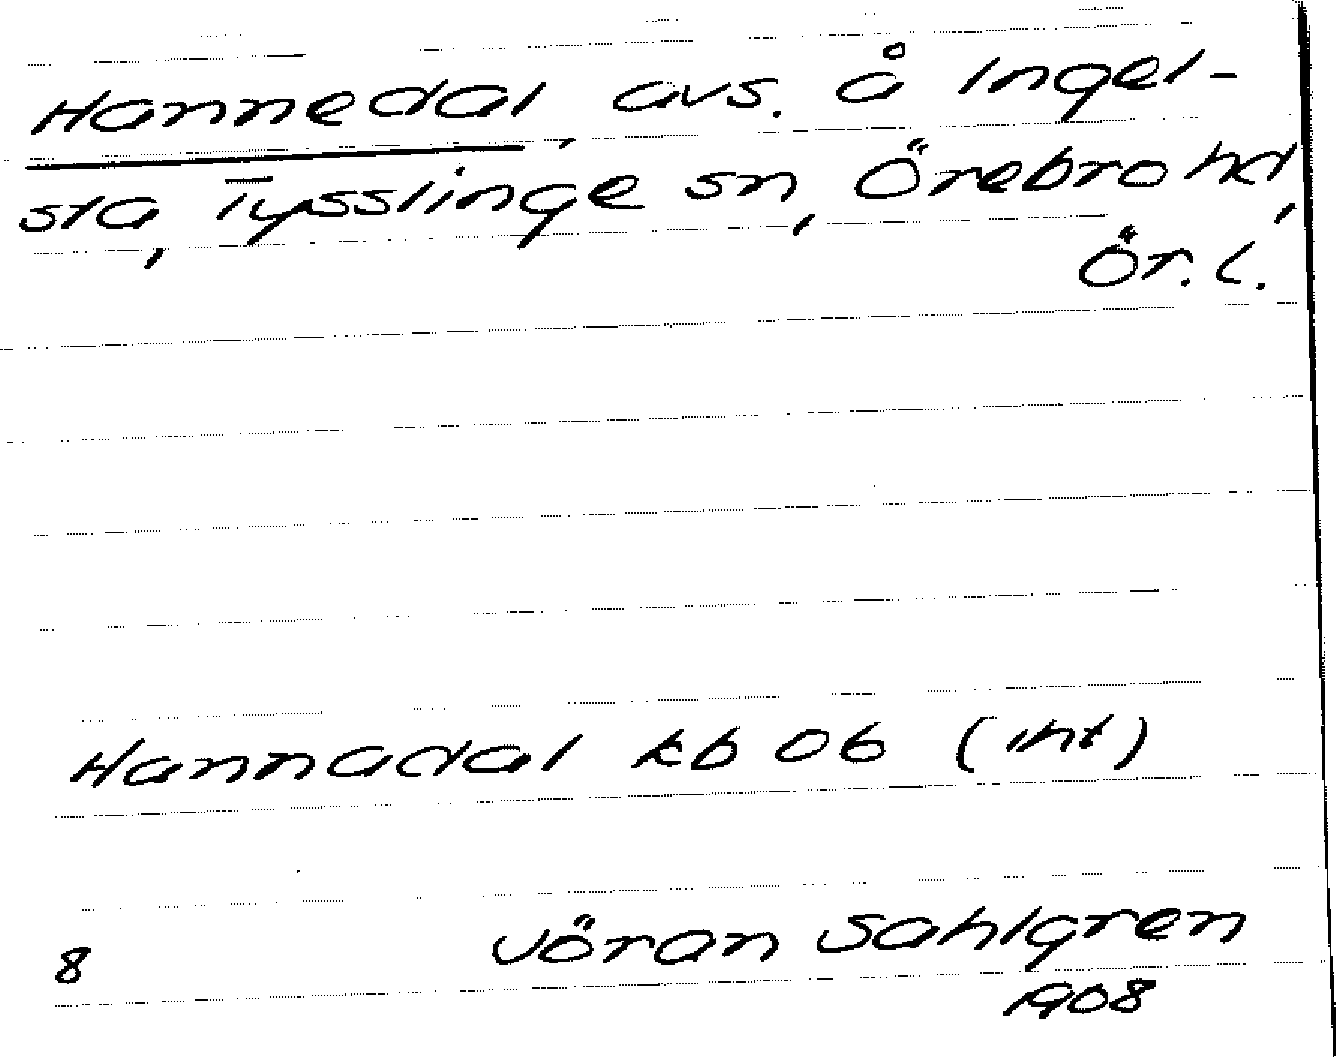 Hannedal, avs. å Ingel-
sta, Tysslinge sn, Örebro hd,
Ör. l.
Hannadal kb 06 (int)
8 Jöran Sahlgren
1908